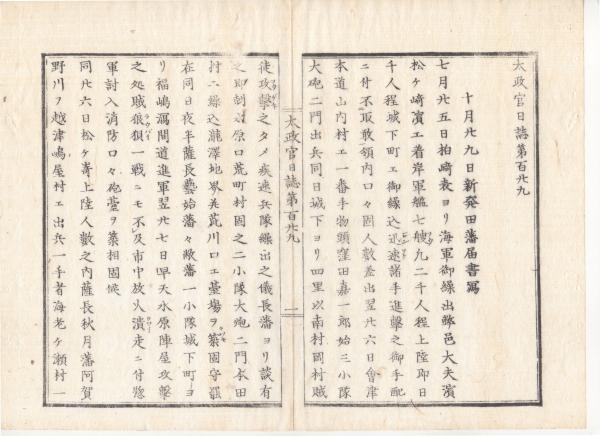 太政官日誌第百廿九
十月廿九日新発田藩届書寫
七月廿五日柏﨑表ヨリ海軍御繰出蘇邑大夫濱
松ケ﨑濱エ着岸軍艦七艘九二千人程上陸即日
千人程城下町エ御繰込迅速諸手進撃之御手配
ニ付不取敢領内口々固人數差出翌廿六日會津
本道山内村エ一番手物頭窪田嘉一郎始三小隊
大砲二門出兵同日城下ヨリ四里以南村岡村賊
太政官日誌第百廿九
一
徒攻擊之タメ疾速兵隊繰出之儀長藩ヨリ談有
之即刻 原口荒町村固之二小隊大砲二門本田
村ニ繰込瀧澤地界 荒川口エ臺場ヲ築固守罷
在同日夜半薩長藝始藩々敵藩一小隊城下町ヨ
リ福嶋瀉間道進軍翌廿七日早天水原陣屋攻擊
之処賊狼狽一戰ニモ不及市中放火潰走ニ付惣
軍討入消防口々砲臺ヲ築相固候
同廿六日松ケ﨑上陸人數之内薩長秋月藩阿賀
野川ヲ越津嶋屋村エ出兵一手者海老ケ瀬村一